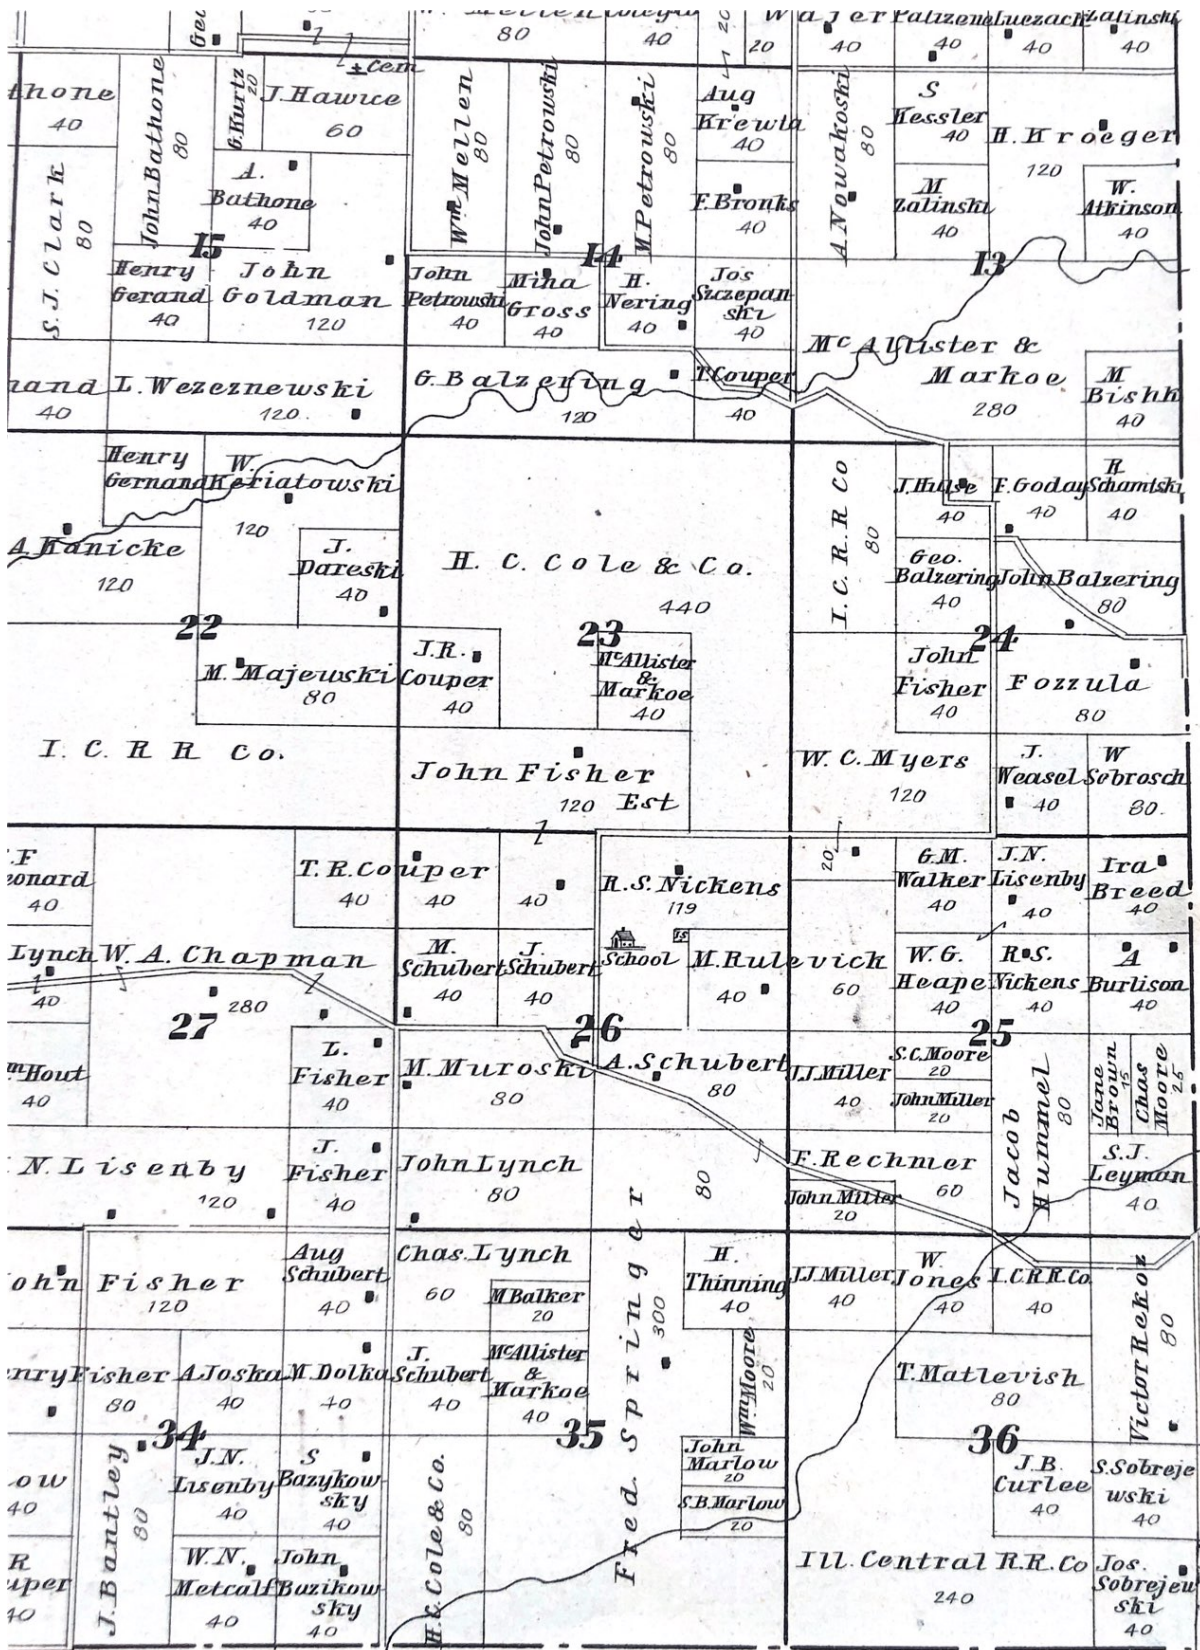 80
40
20
20
40
40
40
40
Palizene
Luczach
Zalinski
Cem
thone
40
John Bathone
80
G. Kurtz
20
J. Hawice
60
Wm Mellen
80
John Petrowski
80
M. Petrowski
80
Aug
Krewla
40
A. Nowakoski
80
S
Kessler
40
H. Kroeger
120
S. J. Clark
80
A.
Bathone
40
F. Bronks
40
M
Zalinski
40
W.
Atkinson
40
15
14
13
Henry
Gerand
40
John
Goldman
120
John
Petrowski
40
Mina
Gross
40
H.
Nering
40
Jos
Szczepan
ski
40
McAllister &
Markoe
280
nand
40
L. Wezeznewski
120
G. Balzering
120
T. Couper
40
M
Bishk
40
Henry
Gernand
W.
Keriatowski
120
A. Hanicke
120
J.
Dareski
40
H. C. Cole & Co.
440
I. C. R. R Co
80
J. Hulse
40
F. Goday
40
R
Schamtski
40
Geo.
Balzering
40
John Balzering
80
22
23
24
M. Majewski
80
J.R.
Couper
40
McAllister
&
Markoe
40
John
Fisher
40
Fozzula
80
I. C. R R Co.
John Fisher
120 Est
W. C. Myers
120
J.
Weasel
40
W
Sobrosch
80
F
eonard
40
T. R. Couper
40
40
40
R. S. Nickens
119
20
G.M.
Walker
40
J.N.
Lisenby
40
Ira
Breed
40
Lynch
40
W. A. Chapman
280
M.
Schubert
40
J.
Schubert
40
School
M. Rulevick
40
60
W. G.
Heape
40
R. S.
Nickens
40
A
Burlison
40
27
26
25
m Hout
40
L.
Fisher
40
M. Muroski
80
A. Schubert
80
J.J. Miller
40
S.C. Moore
20
John Miller
20
Jacob
Hummel
80
Jane
Brown
15
Chas
Moore
25
N. Lisenby
120
J.
Fisher
40
John Lynch
80
80
F. Rechmer
60
John Miller
20
S.J.
Leyman
40
ohn Fisher
120
Aug
Schubert
40
Chas. Lynch
60
M Balker
20
Fred. Springer
300
H.
Thinning
40
J.J. Miller
40
W.
Jones
40
I.C.R.R. Co
40
Victor Rekoz
80
enry Fisher
80
A. Joska
40
M. Dolka
40
J.
Schubert
40
McAllister
&
Markoe
40
Wm Moore
20
T. Matlevish
80
34
35
36
ow
40
J. Bantley
80
J.N.
Lisenby
40
S
Bazykow
sky
40
H.C. Cole & Co.
80
John
Marlow
20
S.B. Marlow
20
J.B.
Curlee
40
S. Sobreje
wski
40
R
uper
40
W.N.
Metcalf
40
John
Buzikow
sky
40
Ill. Central R.R. Co
240
Jos.
Sobrejew
ski
40